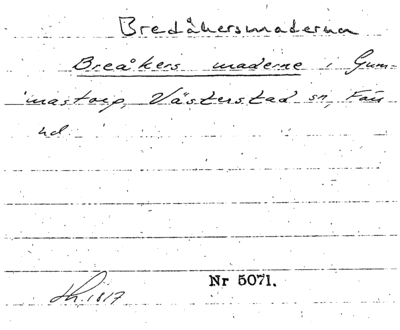 Bredåkersmaderna
Breåkers maderne i Gum-
mastorp, Västerstad sn, Färs
hd.
Nr 5071.
1817